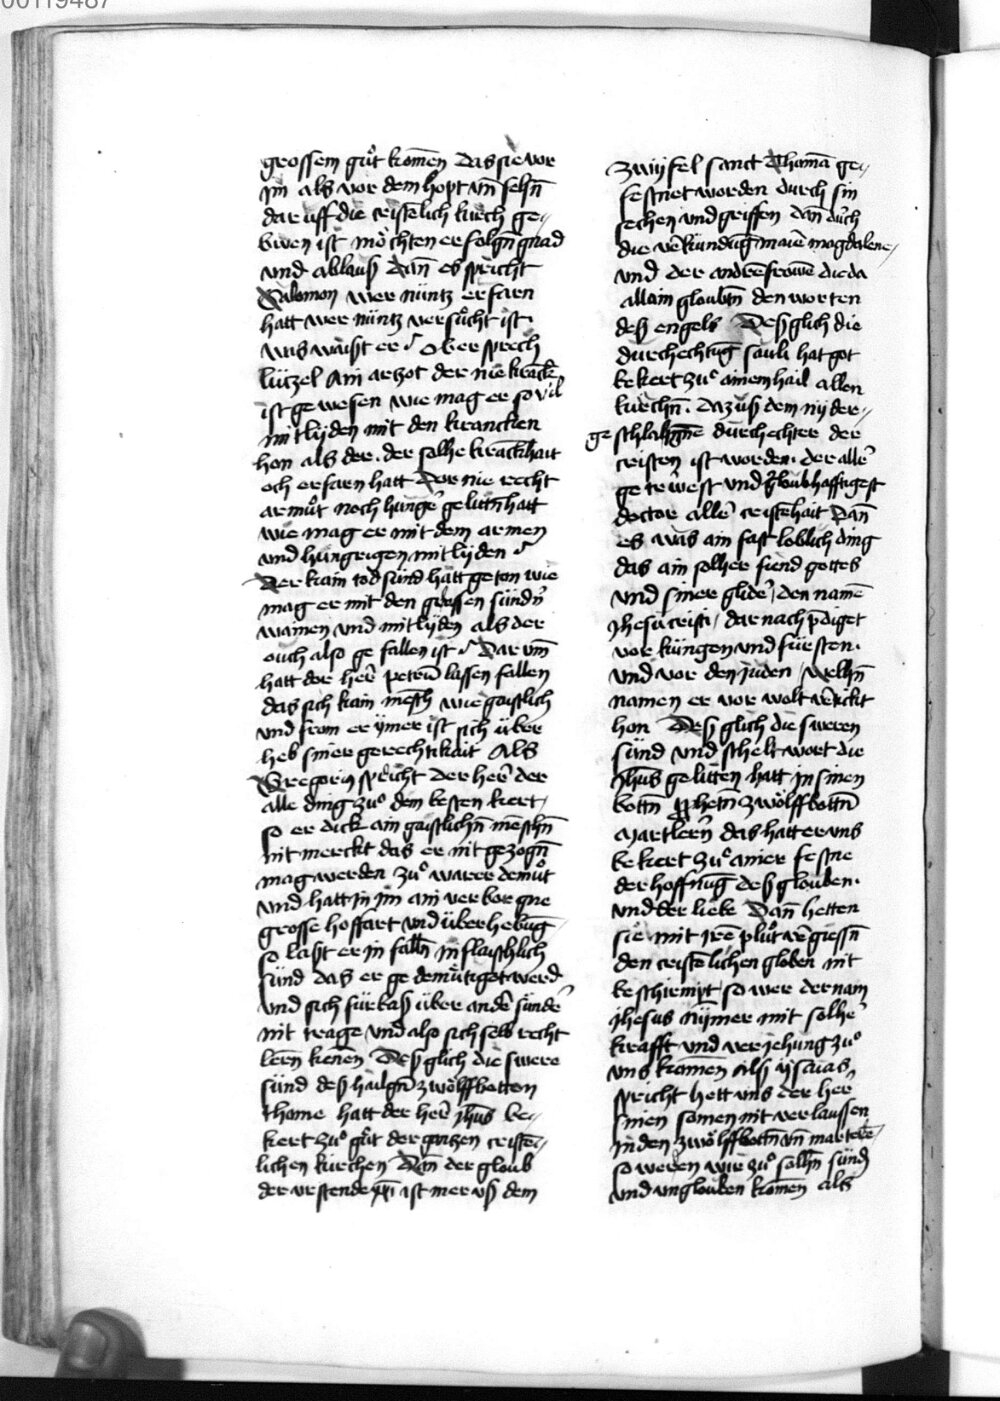 00119487
grossem guͦt komen̄ das sie vor
jm als vor dem hopt vn̄ felsn̄
dar uff die cristelich kirch ge-
buwen ist moͤchten erfolgn̄ gnad
vnd ablauß Dan̄ es spricht
Salomon wer nüntz erfarn
hatt wer nüntz versuͦcht ist
was waißt er / Ober sprech
lützel Ain artzot der nie kranck
ist gewesen wie mag er so vil
mitlyden mit den krancken
hon als der . der solhe kranckhait
och erfarn hatt Der nie recht
armuͦt noch hunger̄ gelittn̄ hatt
wie mag er mit dem armen
vnd hungrigen mitlyden /
Der kain tod sünd hatt geton wie
mag er mit den grossen sündn̄
wainen vnd mitlyden als der
ouch also gefallen ist / Dar vm̄
hatt der her̄ petrum̄ lassen fallen
das sich kain mensch wie gaistlich
vnd from er ymer ist sich über
heb siner gerechtikait Als
Gregorius spricht der her̄ der
alle ding zuͦ dem besten kert /
so er dick ain gaistlichn̄ menschn̄
nit merckt das er nit gezogn̄
mag werden zuͦ warer demuͤt
vnd hatt in jm ain verborgne
grosse hoffart vnd überhebunḡ
so laßt er in falln̄ in flaischlich
sünd das er gedemuͤtiget werd
vnd sich fürbaß über ander̄ sünder̄
nit trage vnd also sich selb recht
lern̄ kenen̄ Deß glich die swere
sünd deß hailgn̄ zwoͤlffbotten
thome hatt der her̄ jhūs be-
kert zuͦ guͦt der gantzen criste-
lichen kirchen Dan̄ der gloub
der vrstende xp̄i ist mer vß dem
zwyfel sanct Thoman̄ ge-
festnet worden durch sin
sechen vnd griffen dan̄ durch
die verkündunḡ marie magdalene /
vnd der andren̄ frowen̄ die da
allain gloubtn̄ den worten
deß engels Deßglich die
durchechtunḡ sauli hat got
bekert zuͦ ainem hail allen
kirchn̄ . Da zuß dem nyder-
geschlagne durchechter der
cristen ist worden . der aller̄
getrüwest vnd gloubhafftigest
doctor aller̄ cristēhait Dan̄
es was ain fast loblich ding
das ain solher fiend gottes
vnd siner glider̄ / den namen̄
jhesu cristi / dar nach p̄diget
vor küngen vnd fürsten .
vnd vor den juden / welhn̄
namen er vor wolt verdickt
hon Deß glich die sweren
sünd vnd scheltwort die
jhūs gelitten hatt in sinen
bottn̄ p̄phetn̄ zwoͤlffbottn̄
Martlern̄ das hatt er vns
bekert zuͦ ainer festne
der hoffnuḡ deß glouben .
vnd der liebe Dan̄ hetten
sie mit jrem̄ pluͦt vergiessn̄
den cristēlichen globen nit
beschirmpt so wer der nam
jhesus nÿmer mit solher̄
krafft vnd verjehung zuͦ
vns komen̄ Alß ysaias
spricht hett vns der her̄
sinen somen nit verlaussen
in den zwoͤlffbottn̄ vn̄ martrer̄ /
so weren wir zuͦ solhn̄ sünd
vnd vnglouben komen̄ als